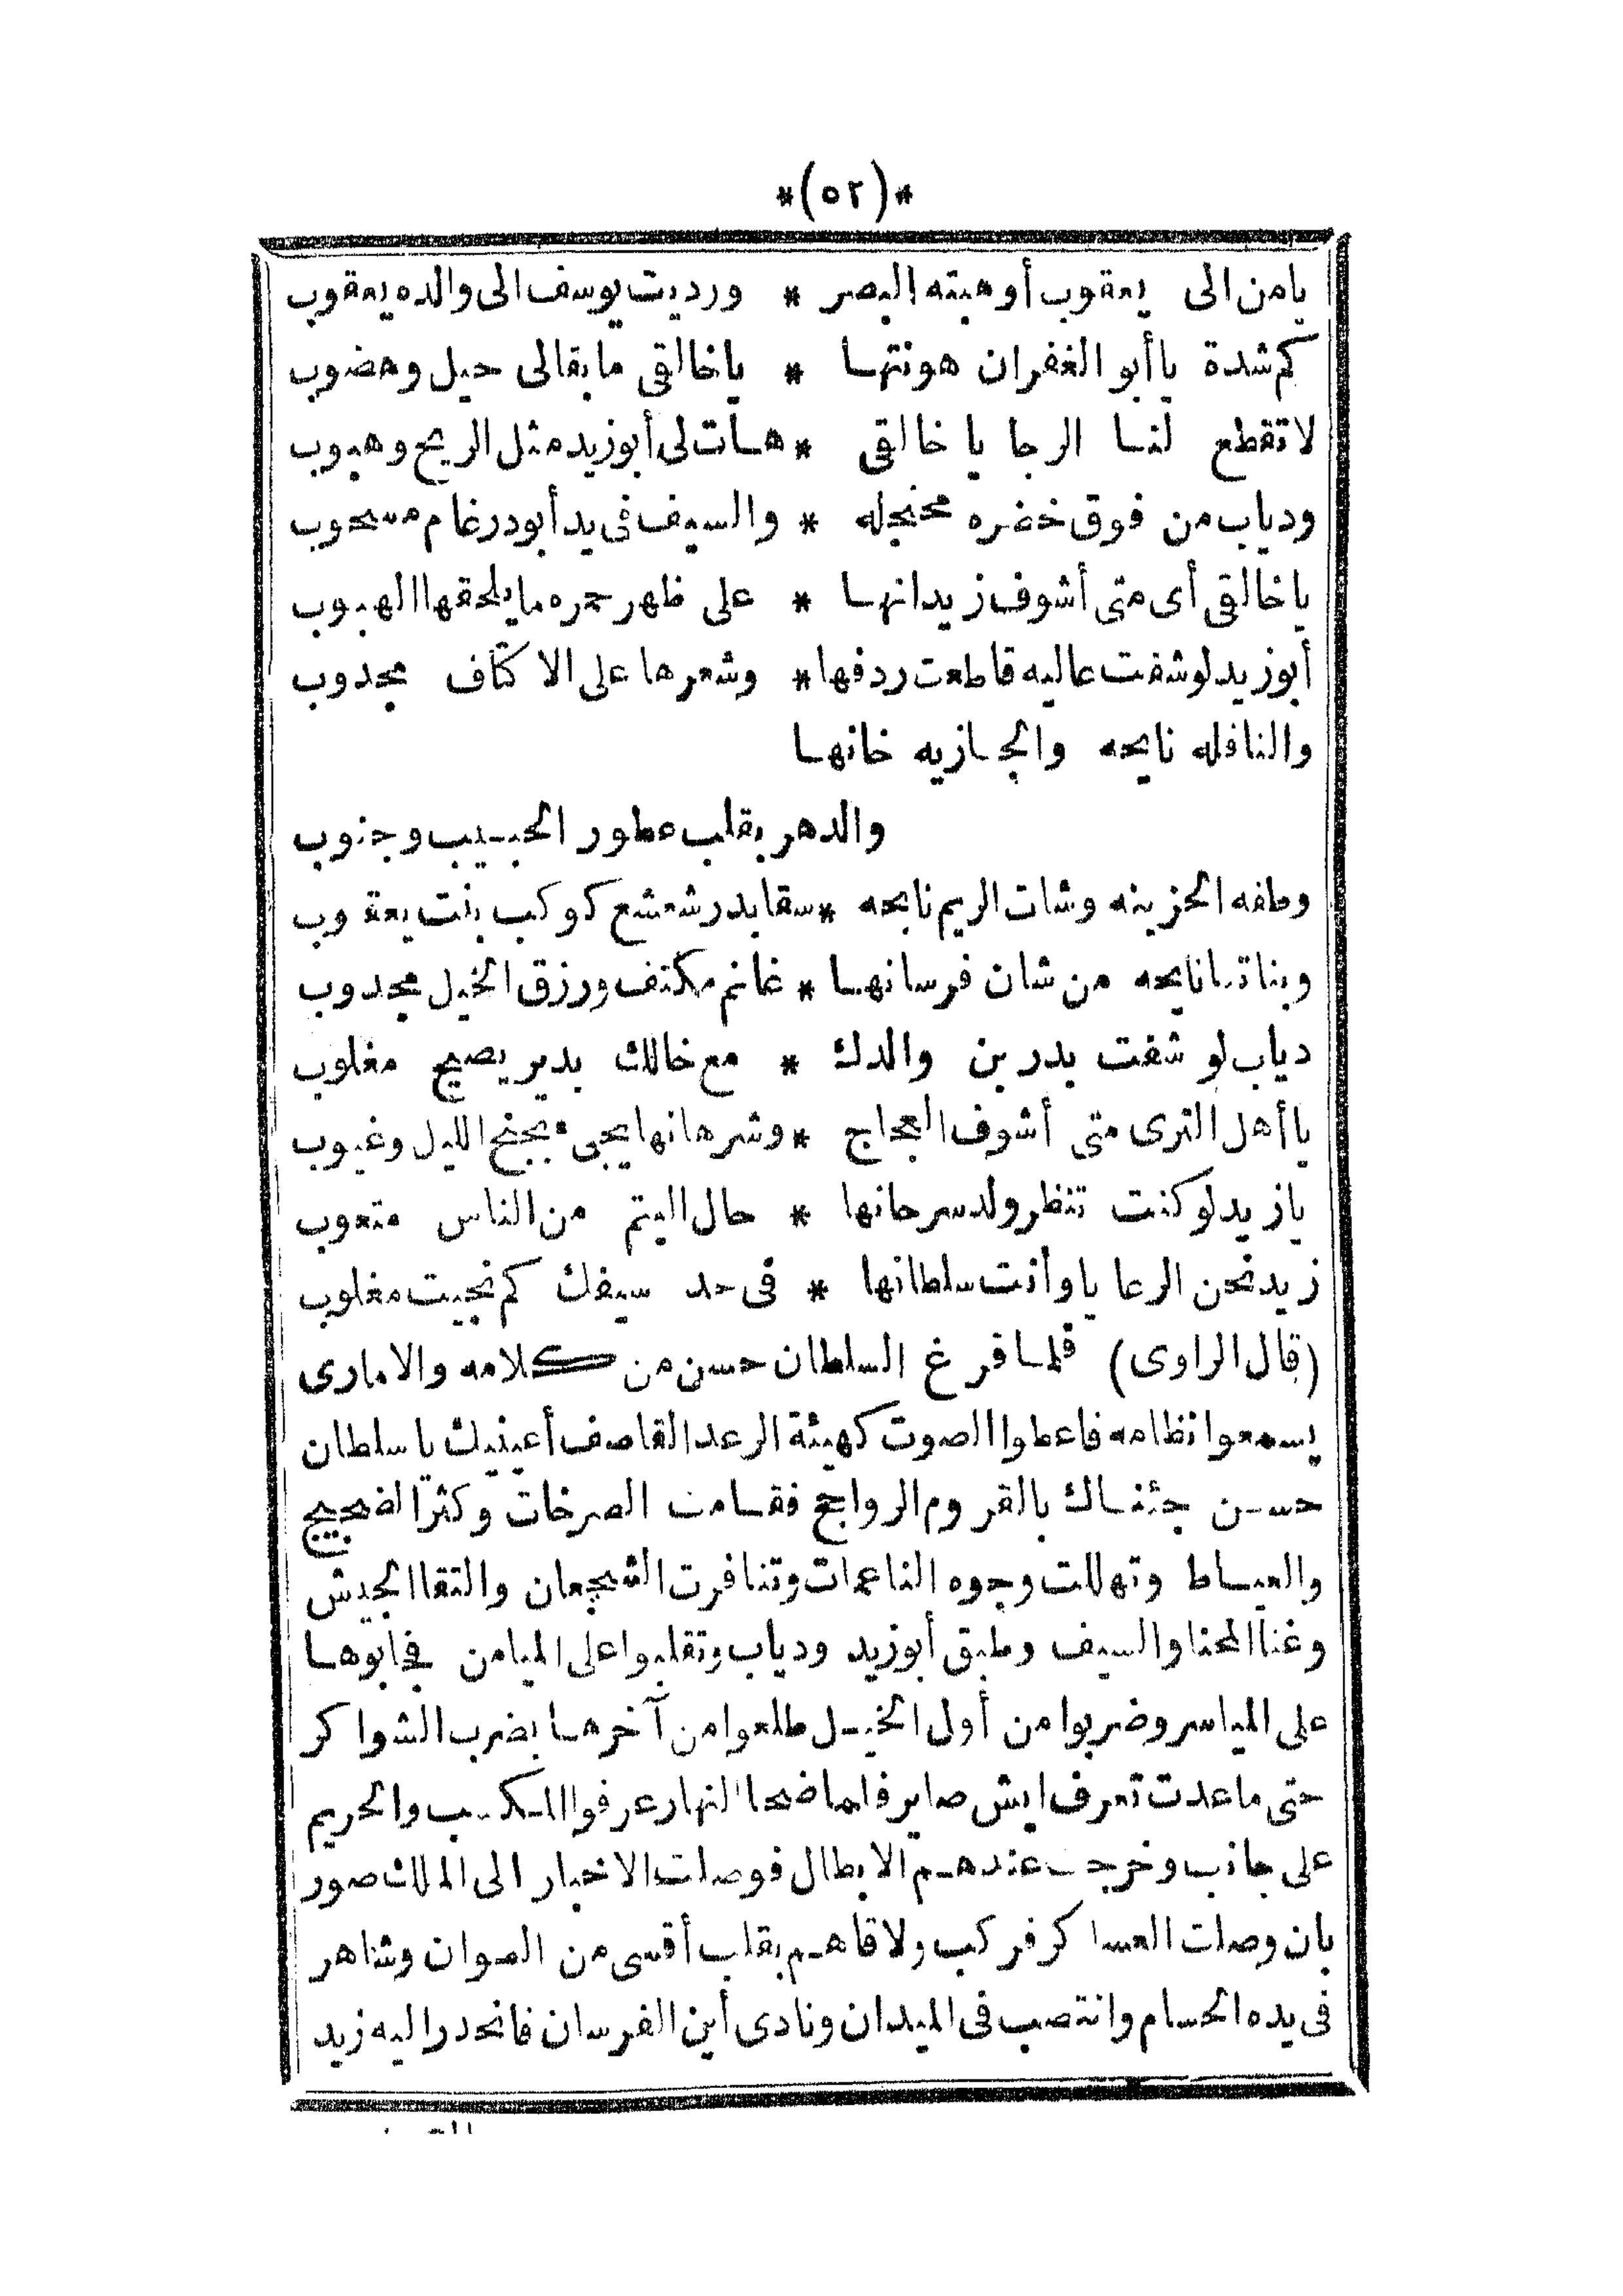 *(٥٢)*
يامن الى يعقوب أوهبته البصر * ورديت يوسف الى والده يعقوب
كم شدة ياأبو الغفران هونتها * ياخالقى مابقالى حيل وهضوب
لا تقطع لنا الرجا يا خالقى * هات لى أبوزيد مثل الريح وهبوب
ودياب من فوق خضره محنجله * والسيف فى يد أبودرغام مسحوب
ياخالقى أى متى أشوف زيدانها * على ظهر حمره مايلحقها الهبوب
أبوزيد لوشفت عاليه قاطعت ردفها * وشعرها على الاكتاف مجدوب
والنافله نايحه والجازيه خانها
والدهر يقلب عطور الحبيب وجنوب
وطفه الحزينه وشات الريم نايحه * سقا بدر شعشع كوكب بنت يعقوب
وبناتنا نايحه من شان فرسانها * غانم مكتف ورزق الخيل مجدوب
دياب لو شفت بدر بن والدك * مع خالك بدير يصيح مغلوب
ياأهل الترى متى أشوف العجاج * وشرهانها يجى بجنح الليل وغيوب
يازيد لوكنت تنظر ولد سرحانها * حال اليتم من الناس متعوب
زيد نحن الرعايا وأنت سلطانها * فى حد سيفك كم نجيت مغلوب
(قال الراوى) فلما فرغ السلطان حسن من كلامه والامارى
يسمعوا نظامه فاعطوا الصوت كهيئة الرعد القاصف أعينيك ياسلطان
حسن جئناك بالقروم الروابح فقامت الصرخات وكثر الضجيج
والعياط وتهللت وجوه الناعمات وتنافرت الشجعان والتقا الجيش
وغنا المحنا والسيف وطبق أبوزيد ودياب وتقلبوا على الميامن فجابوها
على المياسر وضربوا من أول الخيل طلعوا من آخرها بضرب الشواكر
حتى ماعدت تعرف ايش صاير فلما ضحا النهار عرفوا المكسب والحريم
على جانب وخرجت عندهم الابطال فوصلت الاخبار الى الملك صور
بان وصلت العساكر فركب ولاقاهم بقلب أقسى من الصوان وشاهر
فى يده الحسام وانتصب فى الميدان ونادى أين الفرسان فانحدر اليه زيد